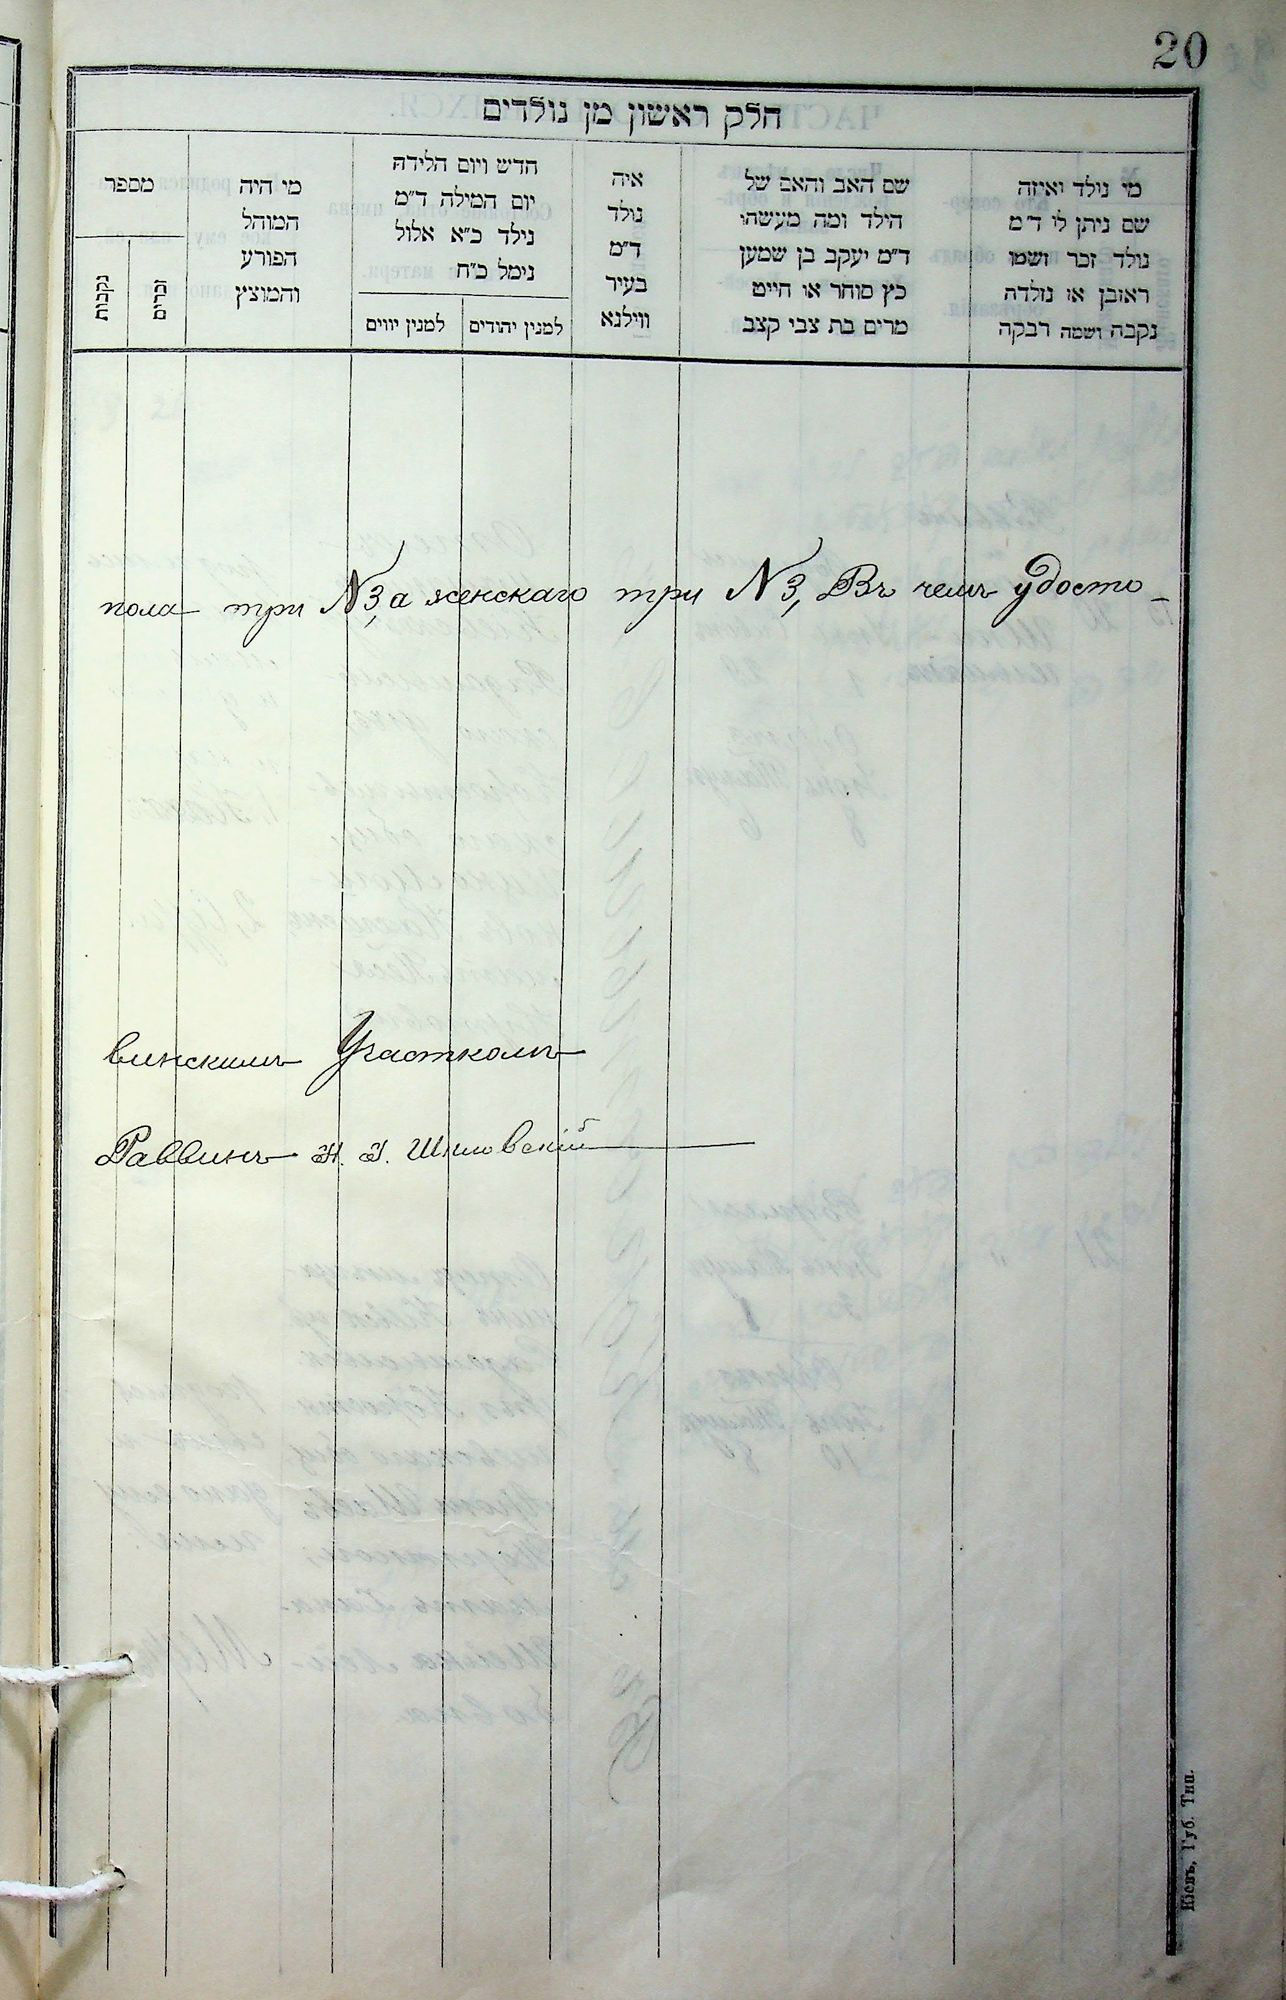 20
חלק ראשון מן נולדים
מי נולד ואיזה
שם ניתן לו ד״מ
נולד זכר ושמו
ראובן או נולדה
נקבה ושמה רבקה
שם האב והאם של
הילד ומה מעשהו
ד״מ יעקב בן שמעון
כץ סוחר או חייט
מרים בת צבי קצב
איה
נולד
ד״מ
בעיר
ווילנא
חדש ויום הלידה
יום המילה ד״מ
נולד כ״א אלול
נימל כ״ח
למנין יהודים
למנין יווים
מי היה
המוהל
הפורע
והמוצץ
מספר
זכרים
נקבות
пола три №3, а женскаго три №3, Въ чемъ удосто-
винскимъ Участкомъ
Раввинъ Я. І. Шкловскій
Кіевъ, Губ. Тип.